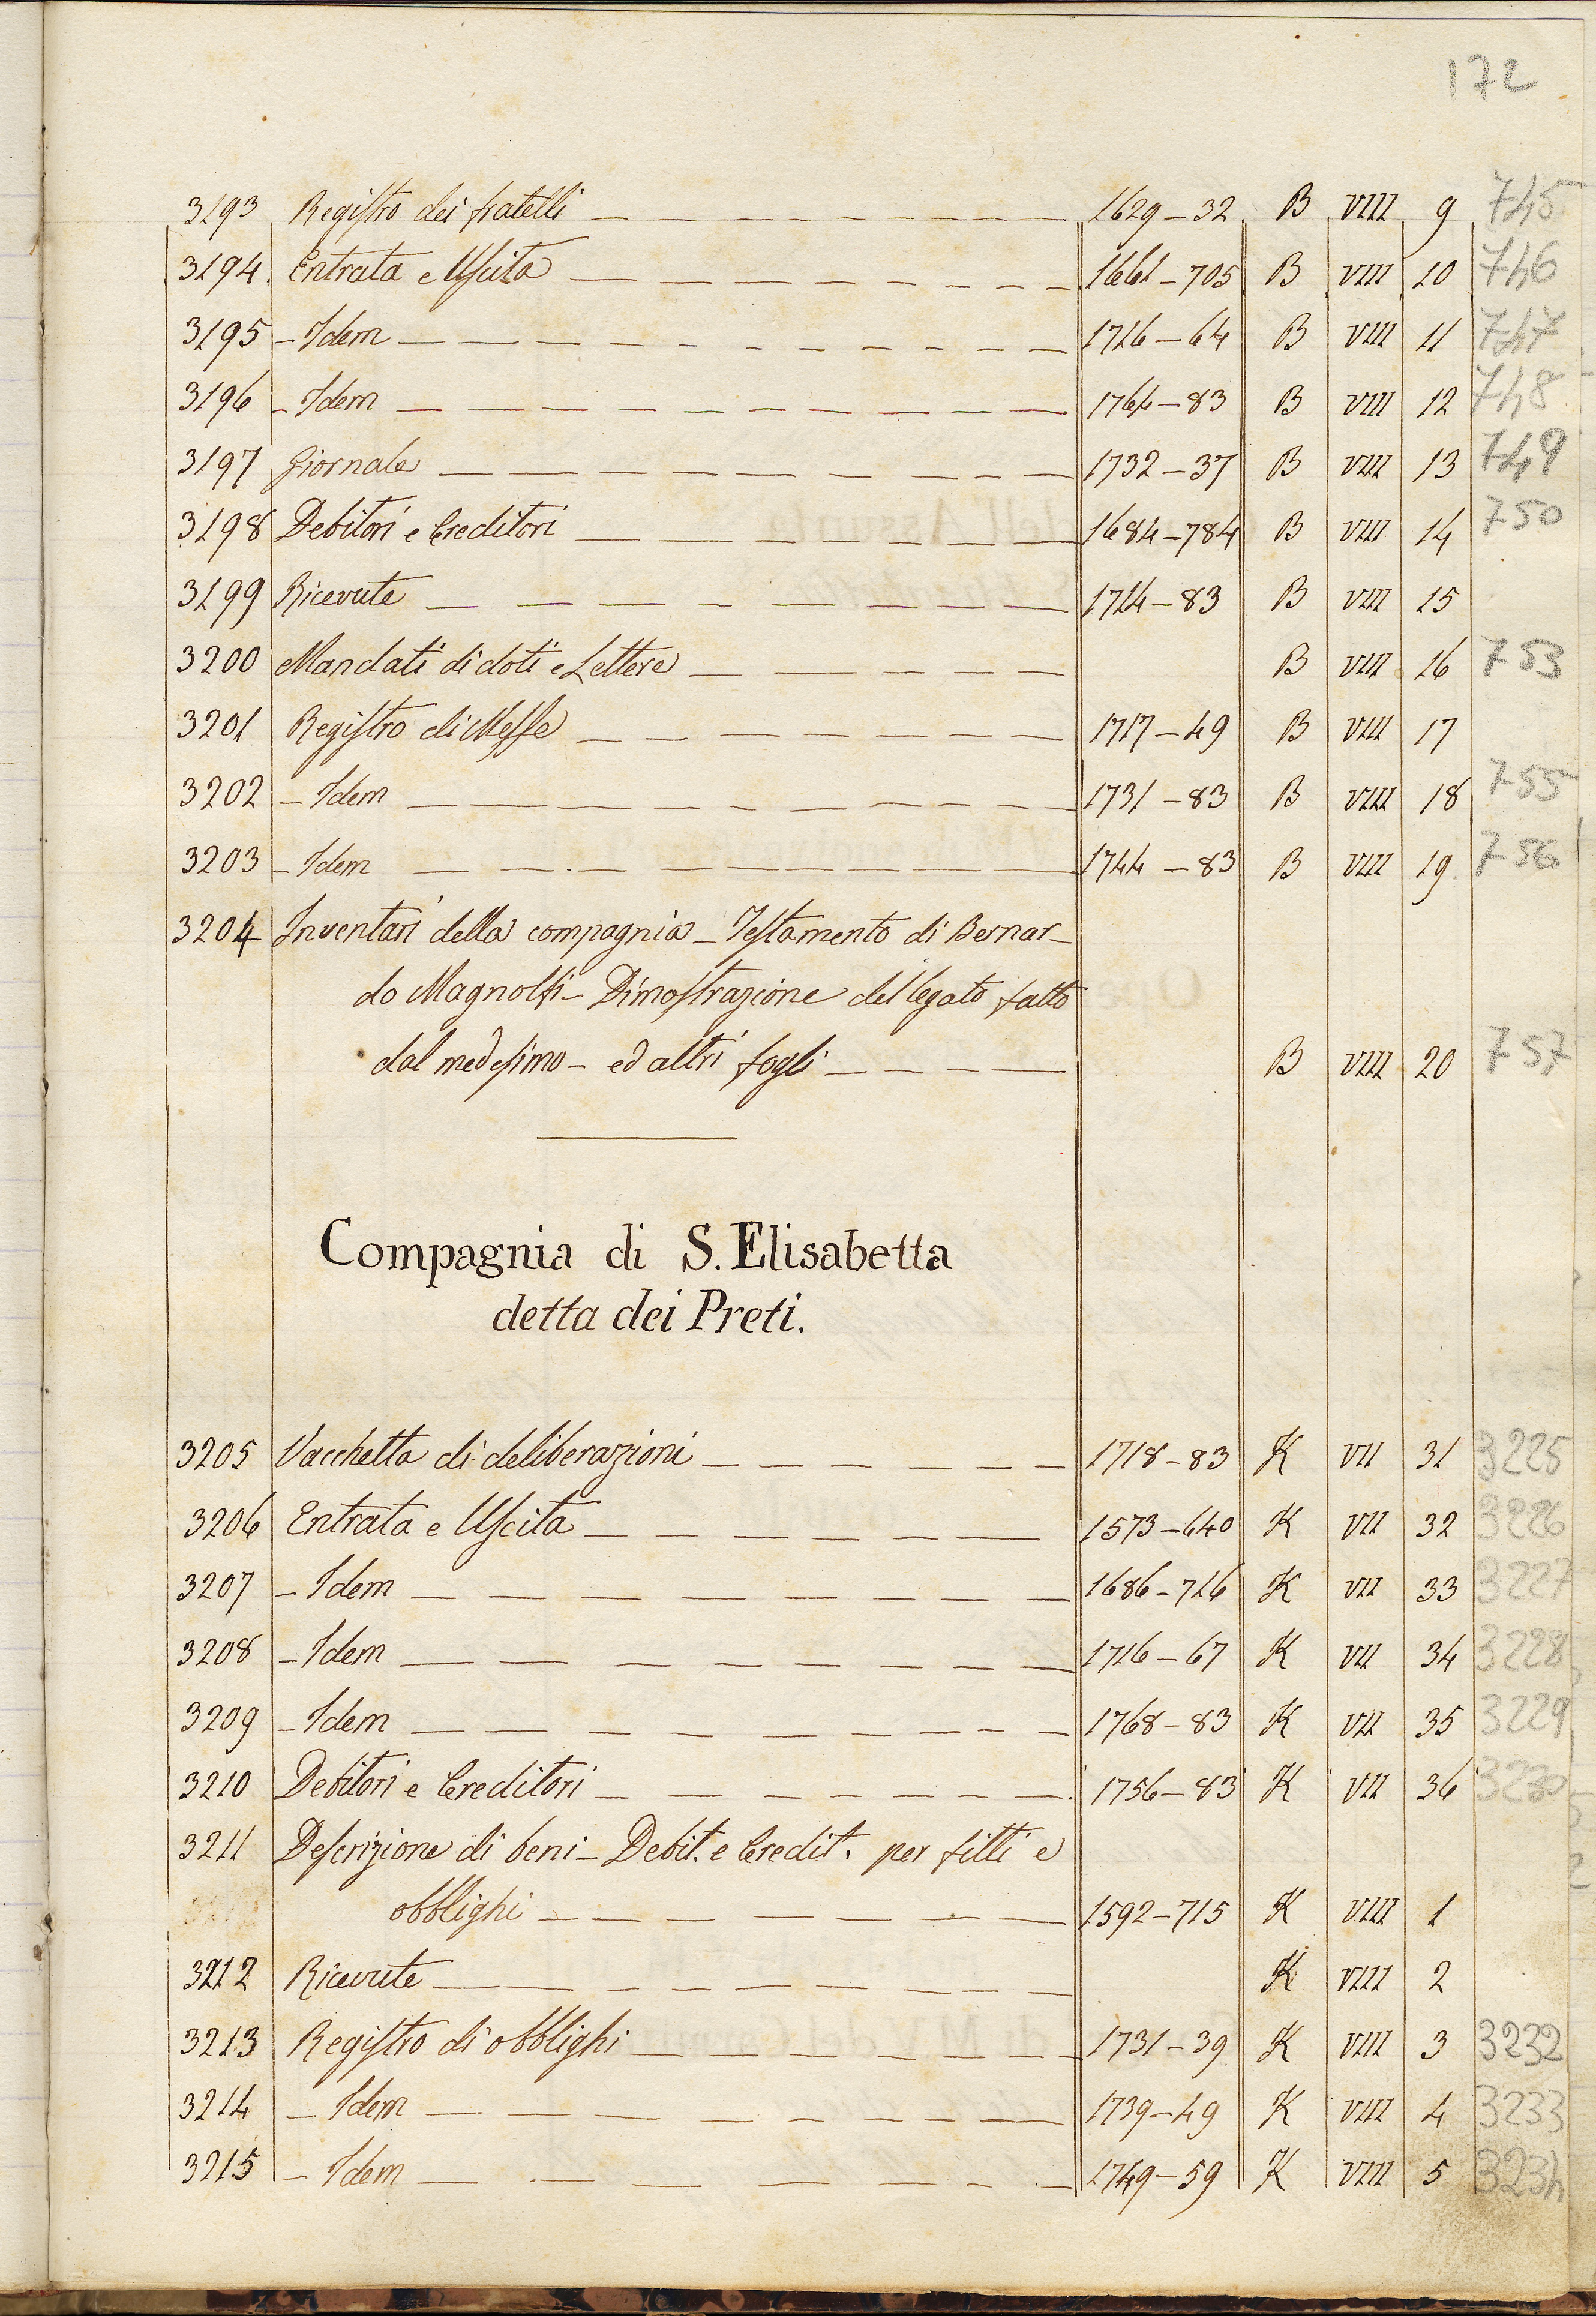 172
3193 Registro dei fratelli 1629-32 B VIII 9 745
3194 Entrata e Uscita 1661-705 B VIII 10 746
3195 - Idem 1716-64 B VIII 11 747
3196 - Idem 1764-83 B VIII 12 748
3197 Giornale 1732-37 B VIII 13 749
3198 Debitori e Creditori 1684-784 B VIII 14 750
3199 Ricevute 1714-83 B VIII 15
3200 Mandati di doti e Lettere B VIII 16 753
3201 Registro di Messe 1717-49 B VIII 17
3202 - Idem 1731-83 B VIII 18 755
3203 - Idem 1744-83 B VIII 19 756
3204 Inventari della compagnia - Testamento di Bernar-
do Magnolfi - Dimostrazione del legato fatto
dal medesimo - ed altri fogli B VIII 20 757
Compagnia di S. Elisabetta
detta dei Preti.
3205 Vacchetta di deliberazioni 1718-83 K VII 31 3225
3206 Entrata e Uscita 1573-640 K VII 32 3226
3207 - Idem 1686-716 K VII 33 3227
3208 - Idem 1716-67 K VII 34 3228
3209 - Idem 1768-83 K VII 35 3229
3210 Debitori e Creditori 1756-83 K VII 36 3230
3211 Descrizione di beni - Debit. e Credit. per fitti e
obblighi 1592-715 K VIII 1
3212 Ricevute K VIII 2
3213 Registro di obblighi 1731-39 K VIII 3 3232
3214 - Idem 1739-49 K VIII 4 3233
3215 - Idem 1749-59 K VIII 5 3234